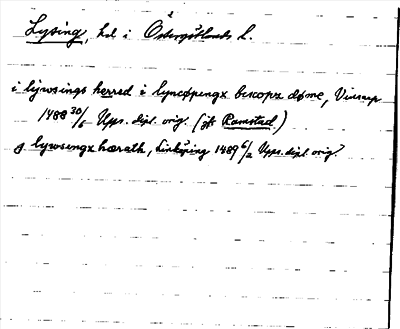 Lysing, hd i Östergötlands l.
i lijwsings herred i lyncøpungx biscopx døme, Vinnerp
1488 30/6 Upps. dipl. orig. (jfr Ramstad.)
g lywsengx hærath, Linköping 1489 6/2 Upps. dipl. orig.